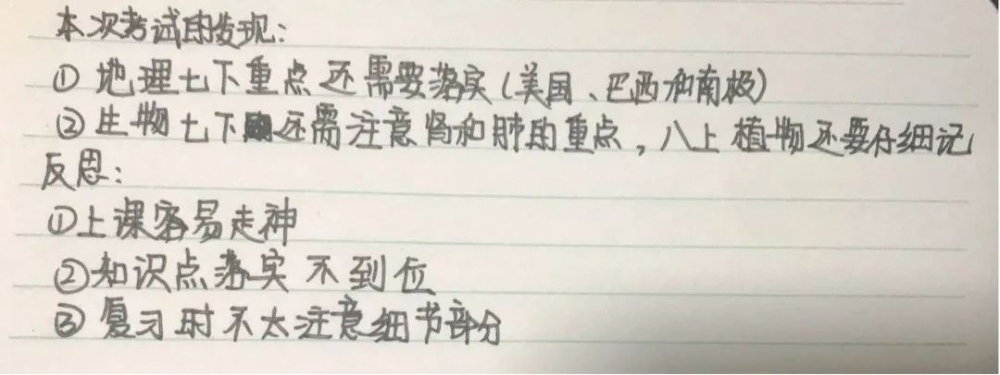 本次考试的发现：
① 地理七下重点还需要落实（美国、巴西和南极）
② 生物七下还需注意肾和肺的重点，八上植物还要仔细记
反思：
①上课容易走神
②知识点落实不到位
③ 复习时不太注意细节部分